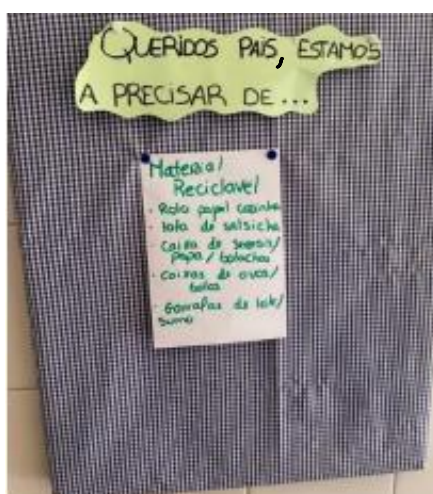 QUERIDOS PAIS, ESTAMOS
A PRECISAR DE...
Material
Reciclavel
- Rolo papel cozinha
- lata de salsicha
- Caixa de cereais/
papa/bolachas
- Caixas de ovos/
bolos
- Garrafas de leite/
sumo